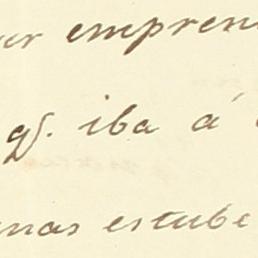 ur empren
qͤ. iba á
nas estube